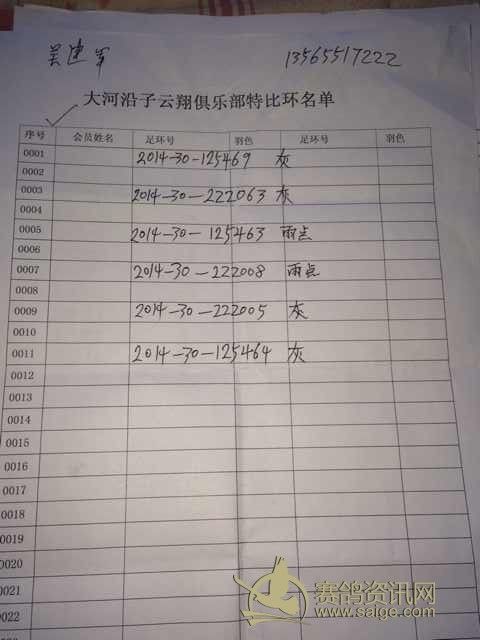 吴建军 13565517222
大河沿子云翔俱乐部特比环名单
序号 会员姓名 足环号 羽色 足环号 羽色
0001 2014-30-125469 灰
0002
0003 2014-30-222063 灰
0004
0005 2014-30-125463 雨点
0006
0007 2014-30-222008 雨点
0008
0009 2014-30-222005 灰
0010
0011 2014-30-125464 灰
0012
0013
0014
0015
0016
0017
0018
0019
0020
0021
0022
赛鸽资讯网
www.saige.com